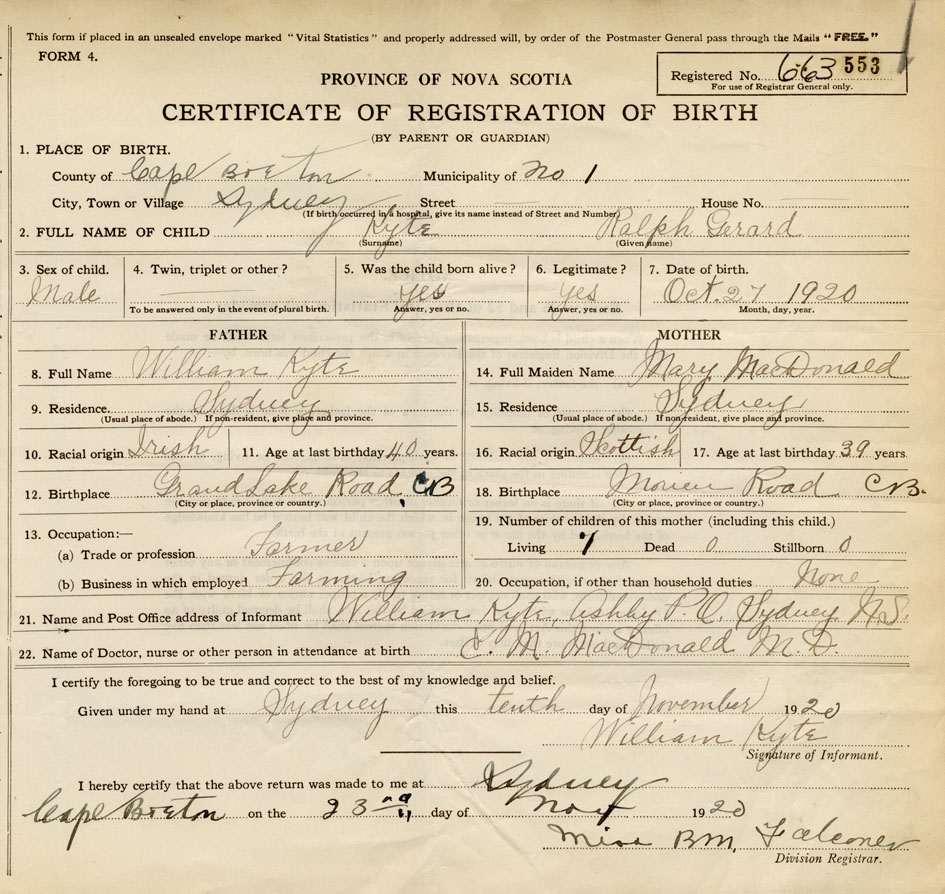 This form if placed in an unsealed envelope marked "Vital Statistics" and properly addressed will, by order of the Postmaster General pass through the Mails "FREE."
FORM 4.
Registered No. 663 553
For use of Registrar General only.
PROVINCE OF NOVA SCOTIA
CERTIFICATE OF REGISTRATION OF BIRTH
(BY PARENT OR GUARDIAN)
1. PLACE OF BIRTH.
County of Cape Breton Municipality of No 1
City, Town or Village Sydney Street House No.
(If birth occurred in a hospital, give its name instead of Street and Number)
2. FULL NAME OF CHILD Kyte Ralph Gerard
(Surname) (Given name)
3. Sex of child. 4. Twin, triplet or other? 5. Was the child born alive? 6. Legitimate? 7. Date of birth.
Male yes yes Oct. 27 1920
To be answered only in the event of plural birth. Answer, yes or no. Answer, yes or no. Month, day, year.
FATHER MOTHER
8. Full Name William Kyte 14. Full Maiden Name Mary MacDonald
9. Residence. Sydney 15. Residence Sydney
(Usual place of abode.) If non-resident, give place and province. (Usual place of abode.) If non-resident, give place and province.
10. Racial origin Irish 11. Age at last birthday 40 years. 16. Racial origin Scottish 17. Age at last birthday 39 years
12. Birthplace Grand Lake Road, CB 18. Birthplace Road CB.
(City or place, province or country.) (City or place, province or country.)
13. Occupation:— 19. Number of children of this mother (including this child.)
(a) Trade or profession Farmer Living Dead 0 Stillborn 0
(b) Business in which employed Farming 20. Occupation, if other than household duties None
21. Name and Post Office address of Informant William Kyte, Ashby P.O. Sydney N.S.
22. Name of Doctor, nurse or other person in attendance at birth C. M. MacDonald M. D.
I certify the foregoing to be true and correct to the best of my knowledge and belief.
Given under my hand at Sydney this tenth day of November 1920
William Kyte
Signature of Informant.
I hereby certify that the above return was made to me at Sydney
Cape Breton on the 23rd day of Nov 1920
Miss BM. Falconer
Division Registrar.